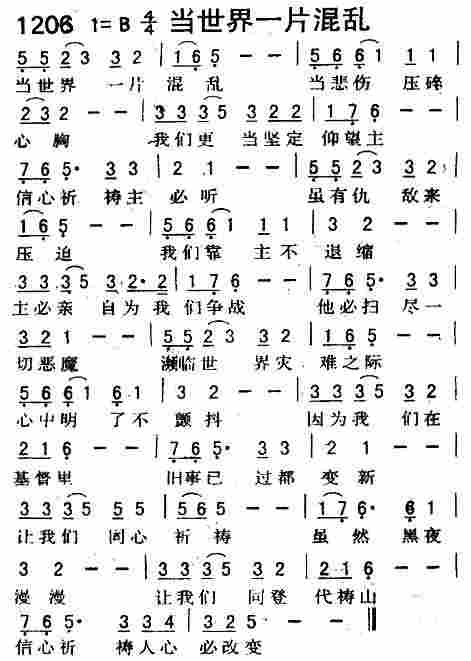 1206 1=B 4/4 当世界一片混乱
5 5 2 3 3 2 - - | 1 6 5 - - | 5 5 6 6 1 1 1 |
当世界 一片 混 乱 当悲伤 压碎
2 3 2 - - | 3 3 3 5 3 2 2 | 1 7 6 - - |
心胸 我们更 当坚定 仰望主
7 6 5· 3 3 | 2 1 - - | 5 5 5 2 3 3 2 |
信心祈 祷主 必听 虽有仇 敌来
1 6 5 - - | 5 6 6 1 1 1 | 3 2 - - |
压 迫 我们靠 主不 退缩
3 3 3 5 3 2·2 | 1 7 6 - - | 7 6 5· 3 3 |
主必亲 自为我 们争战 他必扫 尽一
3 2 1 - - | 5 5 2 3 3 2 | 1 6 5 - - |
切恶魔 濒临世 界灾 难之际
5 6 6 1 6·1 | 3 2 - - | 3 3 3 5 3 2 |
心中明 了不 颤抖 因为我 们在
2 1 6 - - | 7 6 5· 3 3 | 2 1 - - |
基督里 旧事已 过都 变新
3 3 3 5 5 5 | 5 6 5 - - | 1 7 6· 6 1 |
让我们 同心 祈祷 虽然 黑夜
3 2 - - | 3 3 3 5 3 2 | 2 1 6 - - |
漫漫 让我们 同登 代祷山
7 6 5· 3 3 | 3 2 1 - - ‖
信心祈 祷人心 必改变